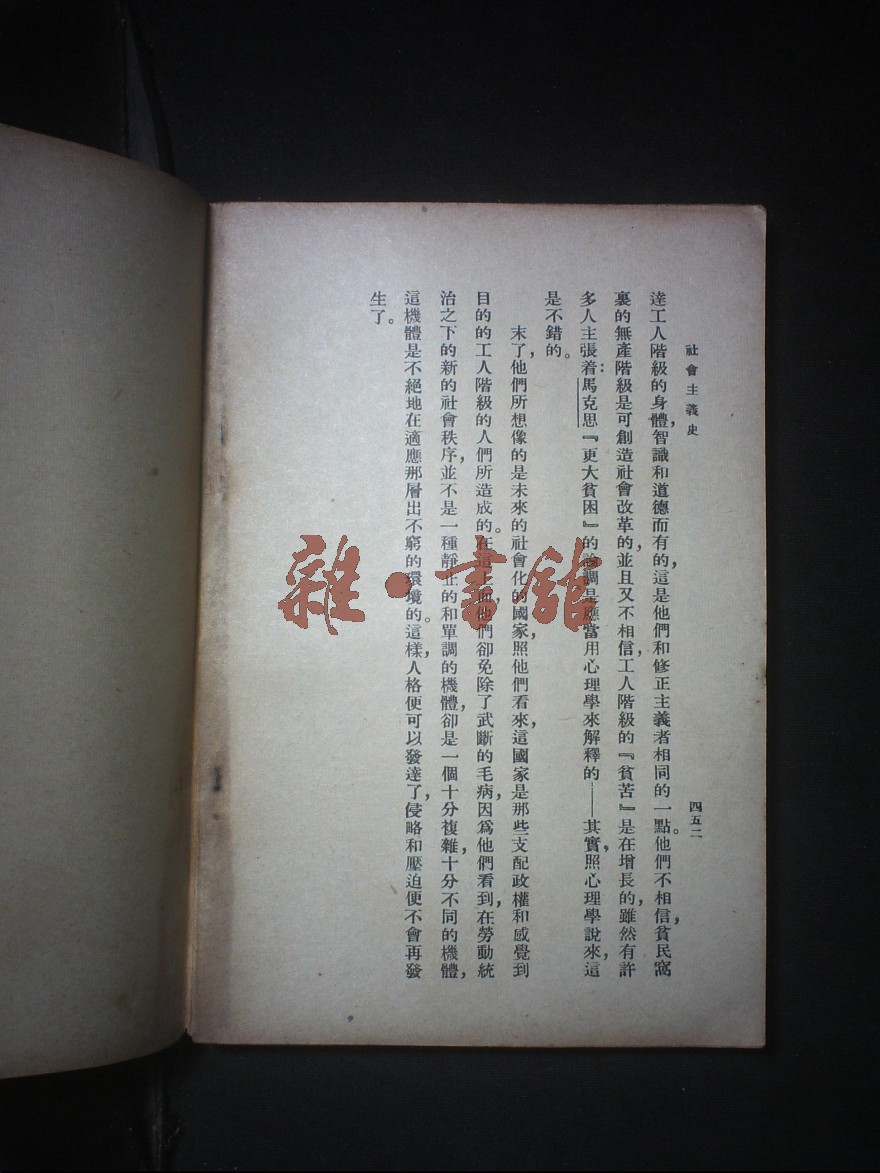 社會主義史
四五二
達工人階級的身體，智識和道德而有的，這是他們和修正主義者相同的一點。他們不相信，貧民窩
裏的無產階級是可創造社會改革的，並且又不相信，工人階級的『貧苦』是在增長的，雖然有許
多人主張着：馬克思『更大貧困』的論調是應當用心理學來解釋的——其實，照心理學說來，這
是不錯的。
末了，他們所想像的是未來的社會化的國家，照他們看來，這國家是那些支配政權和感覺到
目的的工人階級的人們所造成的。在這上面，他們卻免除了武斷的毛病，因為他們看到，在勞動統
治之下的新的社會秩序，並不是一種靜止的和單調的機體，卻是一個十分複雜，十分不同的機體，
這機體是不絕地在適應那層出不窮的環境的。這樣，人格便可以發達了，侵略和壓迫便不會再發
生了。
雜·書館